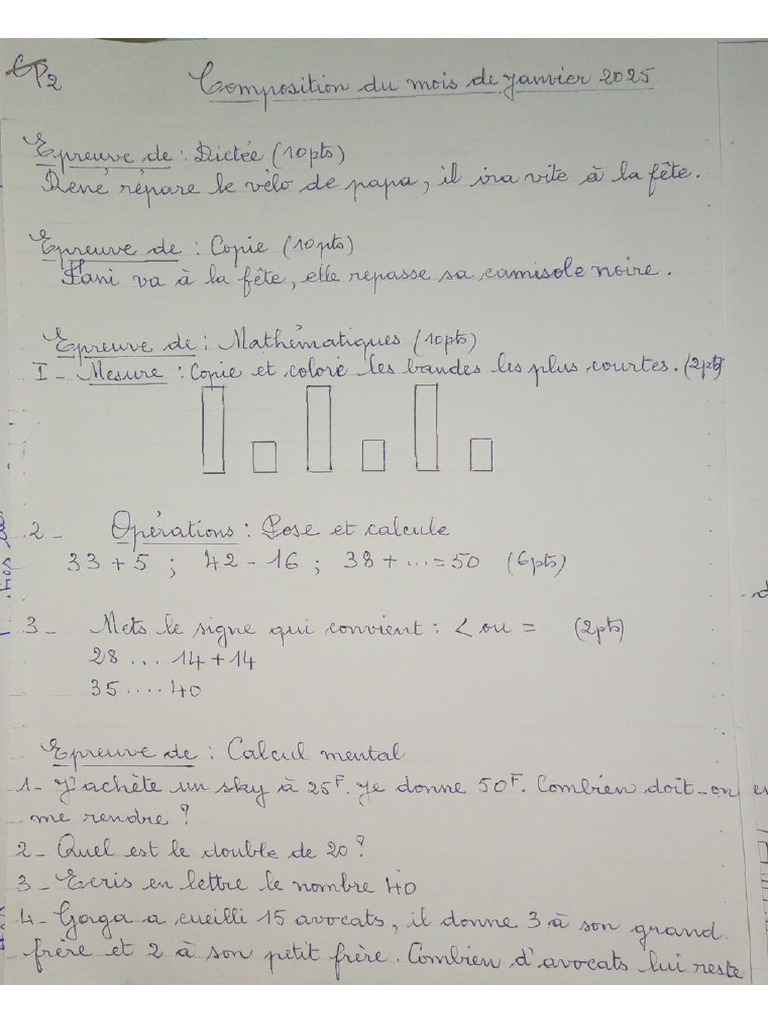 CP2
Composition du mois de janvier 2025
Epreuve de : Dictée (10pts)
René répare le vélo de papa, il ira vite à la fête.
Epreuve de : Copie (10pts)
Fani va à la fête, elle repasse sa camisole noire.
Epreuve de : Mathématiques (10pts)
I - Mesure : Copie et colore les bandes les plus courtes. (2pts)
2 - Opérations : Pose et calcule
33 + 5 ; 42 - 16 ; 38 + ... = 50 (6pts)
3 - Mets le signe qui convient : < ou = (2pts)
28 ... 14 + 14
35 .... 40
Epreuve de : Calcul mental
1 - J'achète un sky à 25F. Je donne 50F. Combien doit-on
me rendre ?
2 - Quel est le double de 20 ?
3 - Ecris en lettre le nombre 40
4 - Gaga a cueilli 15 avocats, il donne 3 à son grand
frère et 2 à son petit frère. Combien d'avocats lui reste